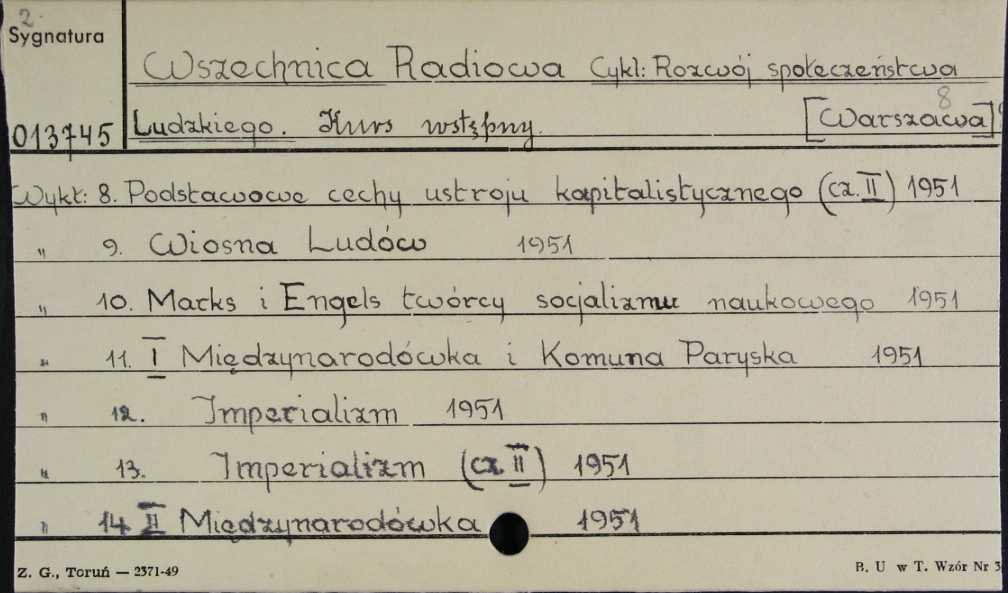 2
Sygnatura
Wszechnica Radiowa Cykl: Rozwój społeczeństwa
8
013745 Ludzkiego. Kurs wstępny. [Warszawa]
Wykł: 8. Podstawowe cechy ustroju kapitalistycznego (cz. II) 1951
" 9. Wiosna Ludów 1951
" 10. Marks i Engels twórcy socjalizmu naukowego 1951
" 11. I Międzynarodówka i Komuna Paryska 1951
" 12. Imperializm 1951
" 13. Imperializm (cz. II) 1951
" 14. II Międzynarodówka 1951
Z. G., Toruń — 2371-49 B. U w T. Wzór Nr 3